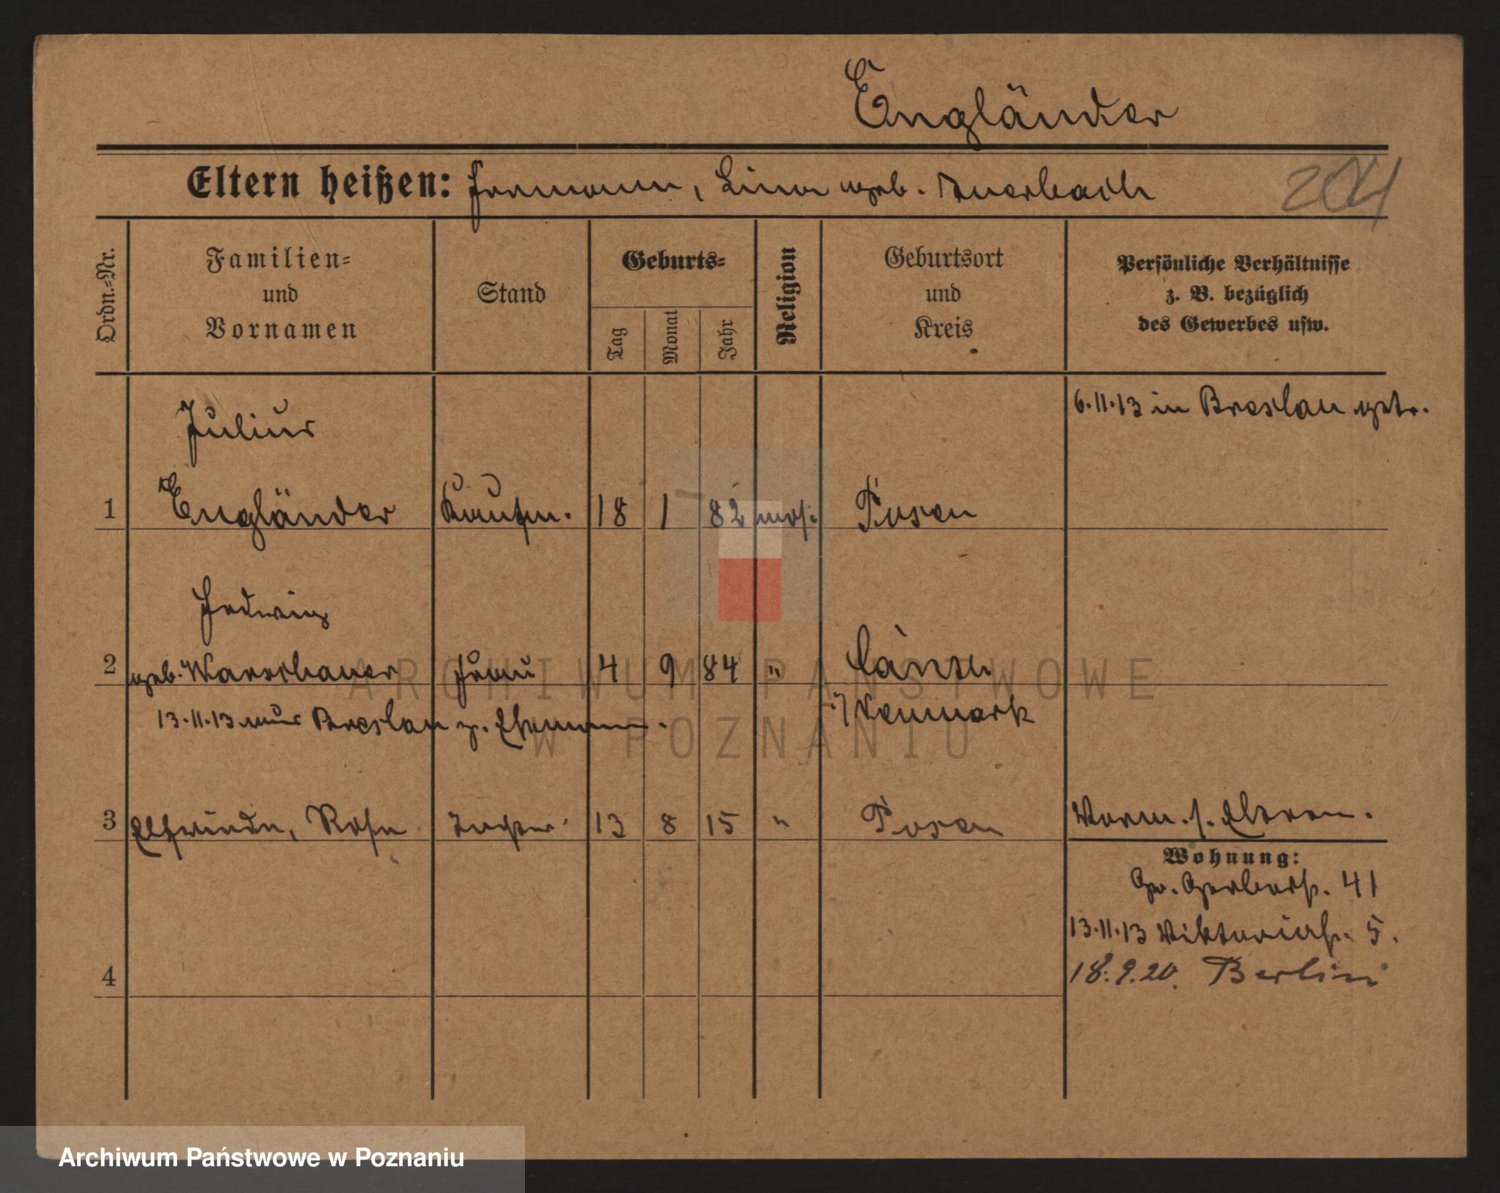 Engländer
Eltern heißen: Hermann, Lina geb. Auerbach
204
Ordn.-Nr.
Familien-
und
Vornamen
Stand
Geburts-
Tag
Monat
Jahr
Religion
Geburtsort
und
Kreis
Persönliche Verhältnisse
z. B. bezüglich
des Gewerbes usw.
6.11.13 in Breslau getr.
Julius
1 Engländer Kaufm. 18 1 82 mos. Posen
Hedwig
2 geb. Warschauer Frau 4 9 84 "
13.11.13 aus Breslau z. Ehemann.
i/
3 Elfriede, Rosa Tochter 13 8 15 " Posen Vorm. s. Eltern.
Wohnung:
Gr. Gerberstr. 41
13.11.13 Viktoriastr. 5.
18.9.20. Berlin
4
ARCHIWUM PAŃSTWOWE
W POZNANIU
Archiwum Państwowe w Poznaniu